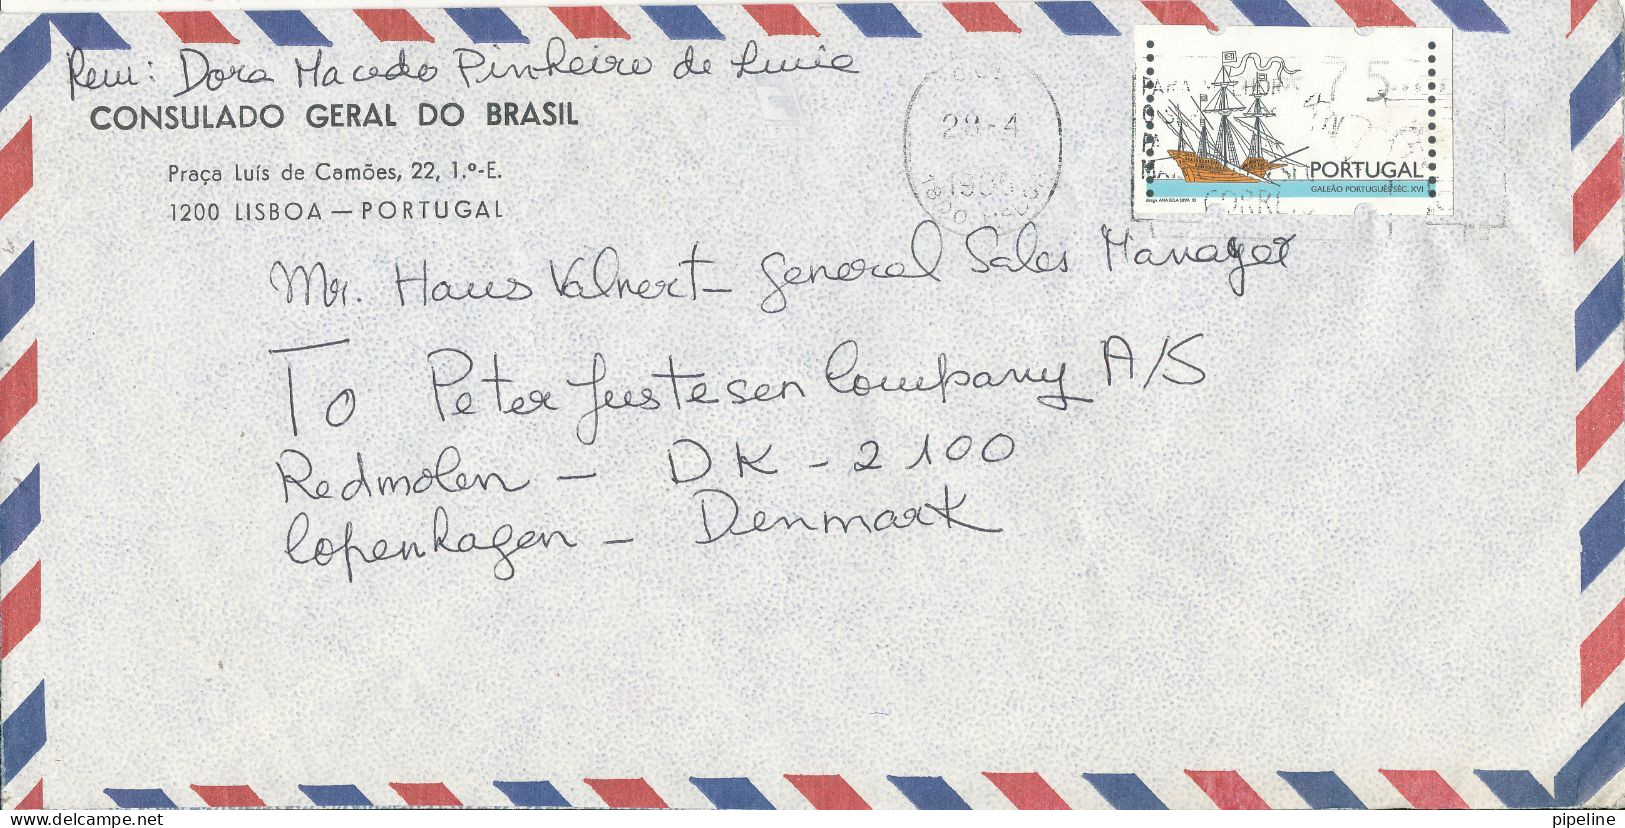 Rem: Dora Macedo Pinheiro de
CONSULADO GERAL DO BRASIL
Praça Luís de Camões, 22, 1.º-E.
1200 LISBOA — PORTUGAL
28-4
75
PORTUGAL
GALEÃO PORTUGUÊS SÉC. XVI
design ANA BELA SILVA 95
CORREIO
Mr. Haus Valnert - General Sales Manager
To Peter Justesen Company A/S
Redmolen - DK - 2100
Copenhagen - Denmark
www.delcampe.net
pipeline